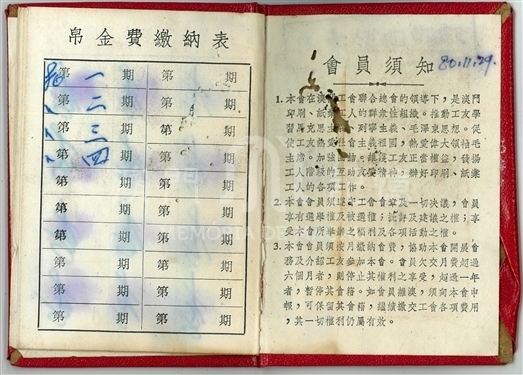 帛金費繳納表
第一期 第 期
第二期 第 期
第三期 第 期
第四期 第 期
第 期 第 期
第 期 第 期
第 期 第 期
第 期 第 期
第 期 第 期
第 期 第 期
會員須知
80.11.29.
1. 本會在澳門工會聯合總會的領導下，是澳門
印刷、紙業工人的群衆性組織。推動工友學
習馬克思主義、列寧主義、毛澤東思想。促
使工友熱愛祖國、熱愛毛主席、熱愛領袖毛
主席。加強團結、
工人階級的互助友愛精神，辦好印刷、紙業
工人的各項工作。
2. 本會會員須遵守工會會章及一切決議，會員
享有選舉權及被選權；批評及建議之權；享
受本會所舉辦之福利及各項活動之權。
3. 本會會員須按月繳納會費，協助本會開展會
務及介紹工友參加本會。會員欠交月費超過
六個月者，則停止其權利之享受，超過一年
者，暫停其會籍。如會員離澳，須向本會申
報，可保留其會籍，繼續繳交工會各項費用
，其一切權利仍屬有效。